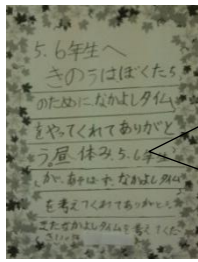 5.6年生へ
きのうはぼくたち
のために、なかよしタイム
をやってくれてありがと
う。昼休み、5.6年生
が、なかよしタイム
を考えてくれてありがとう。
またなかよしタイムを考えてくだ